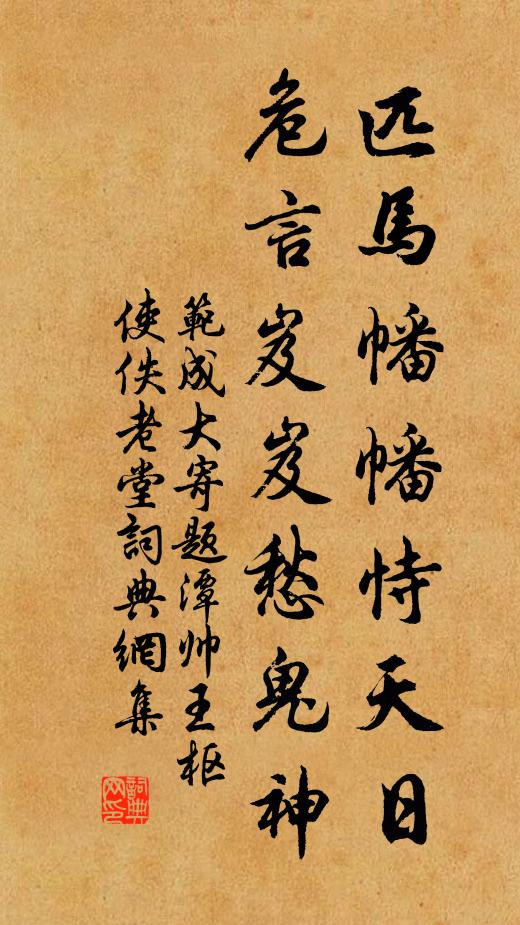 匹馬幡幡恃天日
危言岌岌愁鬼神
範成大寄題潭帅王枢
使佚老堂詞典網集
詞典
网印